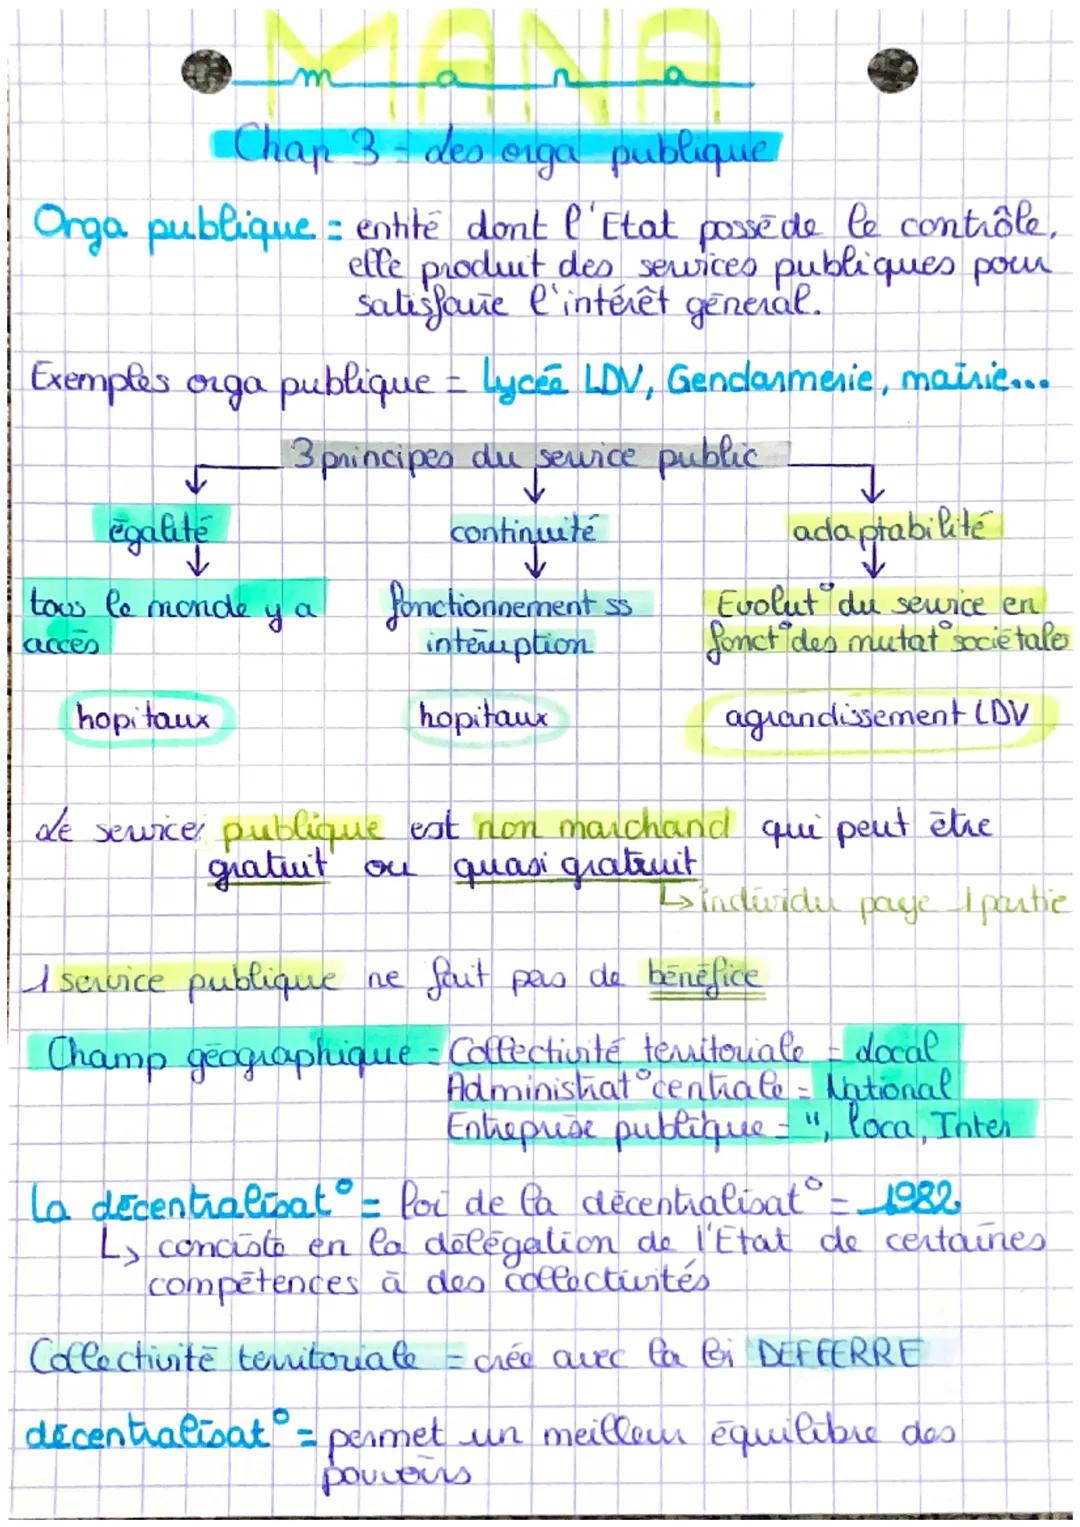 MANA
mana
Chap 3 - des orga publique
Orga publique = entité dont l'Etat possède le contrôle,
elle produit des services publiques pour
satisfaire l'intérêt général.
Exemples orga publique = Lycée LDV, Gendarmerie, mairie...
3 principes du service public
égalité continuité adaptabilité
tous le monde y a fonctionnement ss Evolut° du service en
accès intéruption fonct° des mutat° sociétales
hopitaux hopitaux agrandissement LDV
Le service publique est non marchand qui peut être
gratuit ou quasi gratruit
↳ individu paye 1 partie
1 service publique ne fait pas de bénéfice
Champ géographique = Collectivité territoriale = Local
Administrat° centrale = National
Entreprise publique = ", loca, Inter
La décentralisat° = loi de la décentralisat° = 1982
↳ conciste en la délégation de l'Etat de certaines
compétences à des collectivités
Collectivité territoriale = créé avec la loi DEFFERRE
décentralisat° = permet un meilleur équilibre des
pouvoirs